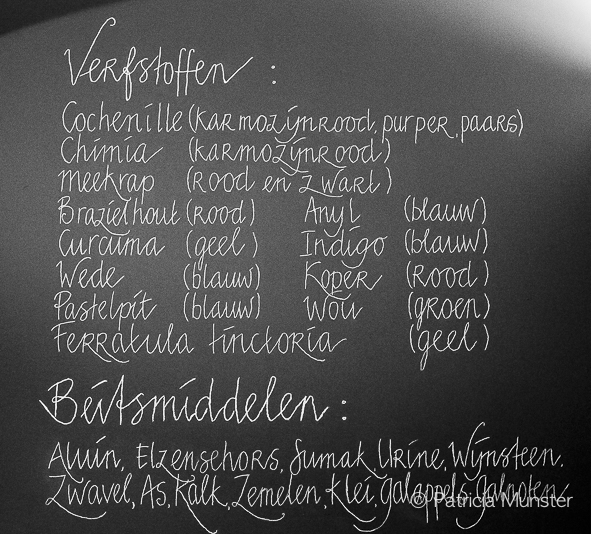 Verfstoffen :
Cochenille (karmozijnrood, purper, paars)
Chimia (karmozijnrood)
meekrap (rood en zwart)
Brazielhout (rood) Anyl (blauw)
Curcuma (geel) Indigo (blauw)
Wede (blauw) Koper (rood)
Pastelpit (blauw) Wou (groen)
Ferratula tinctoria (geel)
Beitsmiddelen :
Aluin, Elzensehors, Sumak, Urine, Wijnsteen.
Zwavel, As, Kalk, Zemelen, Klei, galappels, Galnoten
© Patricia Munster